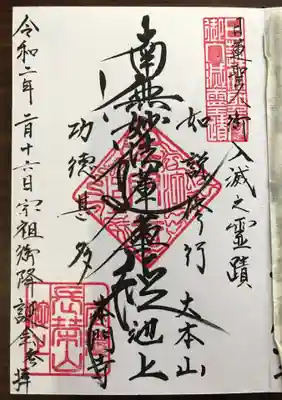 日蓮聖人御入滅之靈蹟
如説修行
大本山
南無妙法蓮華経
池上
本門寺
功徳甚多
長榮山
令和二年二月十六日宗祖御降誕会参拝